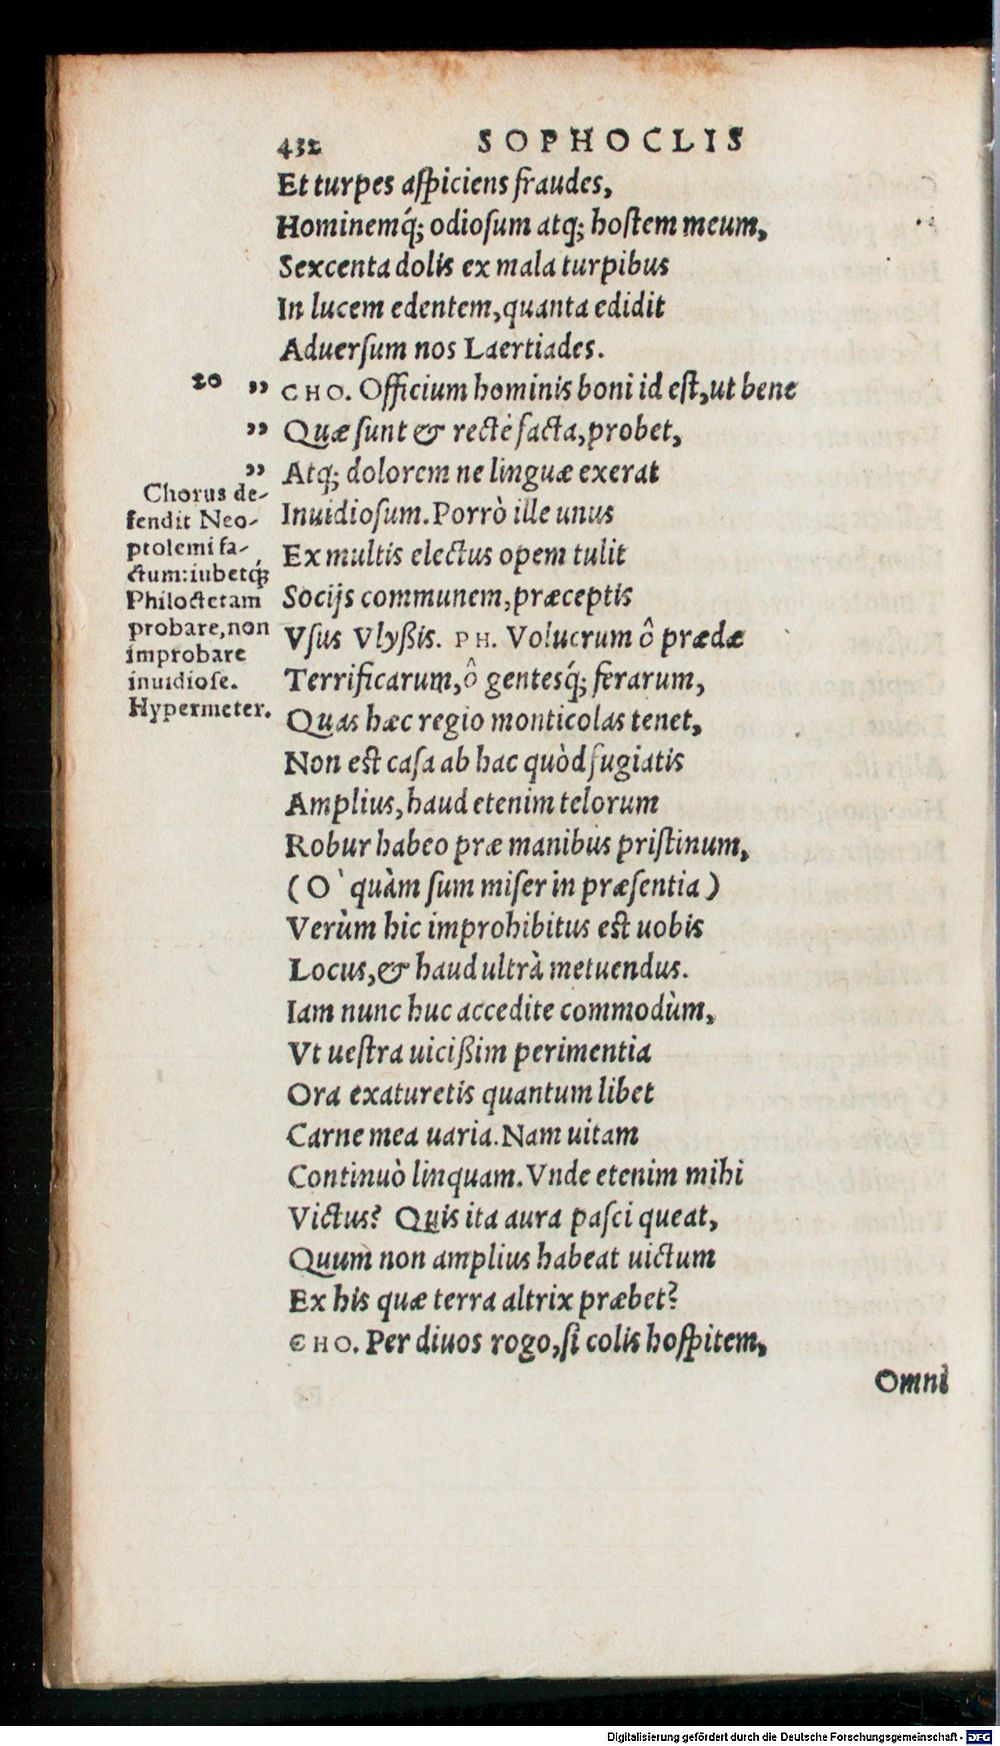 432 SOPHOCLIS
Et turpes aſpiciens fraudes,
Hominemq́; odioſum atq; hoſtem meum,
Sexcenta dolis ex mala turpibus
In lucem edentem, quanta edidit
Aduerſum nos Laertiades.
20 ” CHO. Officium hominis boni id eſt, ut bene
” Quæ ſunt & rectè facta, probet,
” Atq; dolorem ne linguæ exerat
Inuidioſum. Porrò ille unus
Ex multis electus opem tulit
Socijs communem, præceptis
Vſus Vlyßis. PH. Volucrum ô prædæ
Terrificarum, ô gentesq́; ferarum,
Quas hæc regio monticolas tenet,
Non eſt caſa ab hac quòd fugiatis
Amplius, haud etenim telorum
Robur habeo præ manibus priſtinum,
(O` quàm ſum miſer in præſentia)
Verùm hic improhibitus eſt uobis
Locus, & haud ultrà metuendus.
Iam nunc huc accedite commodùm,
Vt ueſtra uicißim perimentia
Ora exaturetis quantum libet
Carne mea uaria. Nam uitam
Continuò linquam. Vnde etenim mihi
Victus? Quis ita aura paſci queat,
Quum non amplius habeat uictum
Ex his quæ terra altrix præbet?
CHO. Per diuos rogo, ſi colis hoſpitem,
Omni
Chorus de-
fendit Neo-
ptolemi fa-
ctum: iubetq́;
Philoctetam
probare, non
improbare
inuidioſe.
Hypermeter.
Digitalisierung gefördert durch die Deutsche Forschungsgemeinschaft - DFG